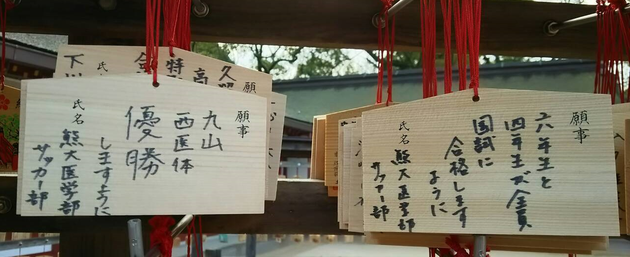 願事
九山
西医体
優勝
しますように
氏名
熊大医学部
サッカー部
願事
六年生と
四年生が全員
国試に
合格します
ように
氏名
熊大医学部
サッカー部
願
高
氏
下